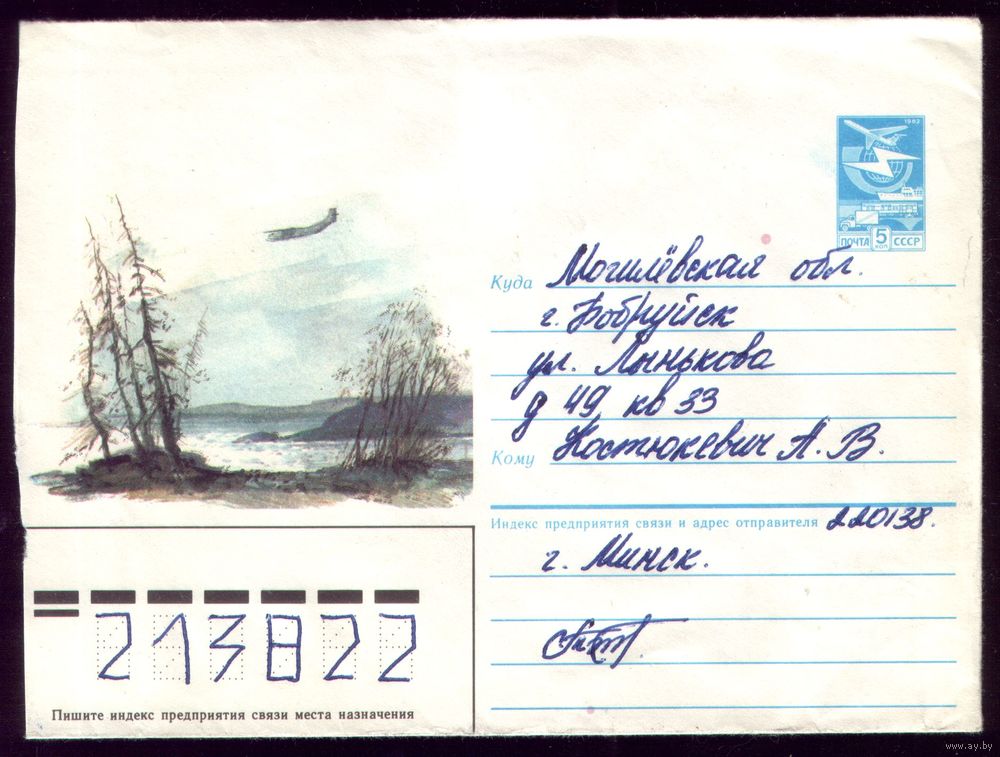 1982
ПОЧТА 5 КОП СССР
Куда Могилёвская обл.
г. Бобруйск
ул. Лынькова
д 49 кв 33
Кому Костюкевич А. В.
Индекс предприятия связи и адрес отправителя 220138.
г. Минск.
213822
Пишите индекс предприятия связи места назначения
www.ay.by